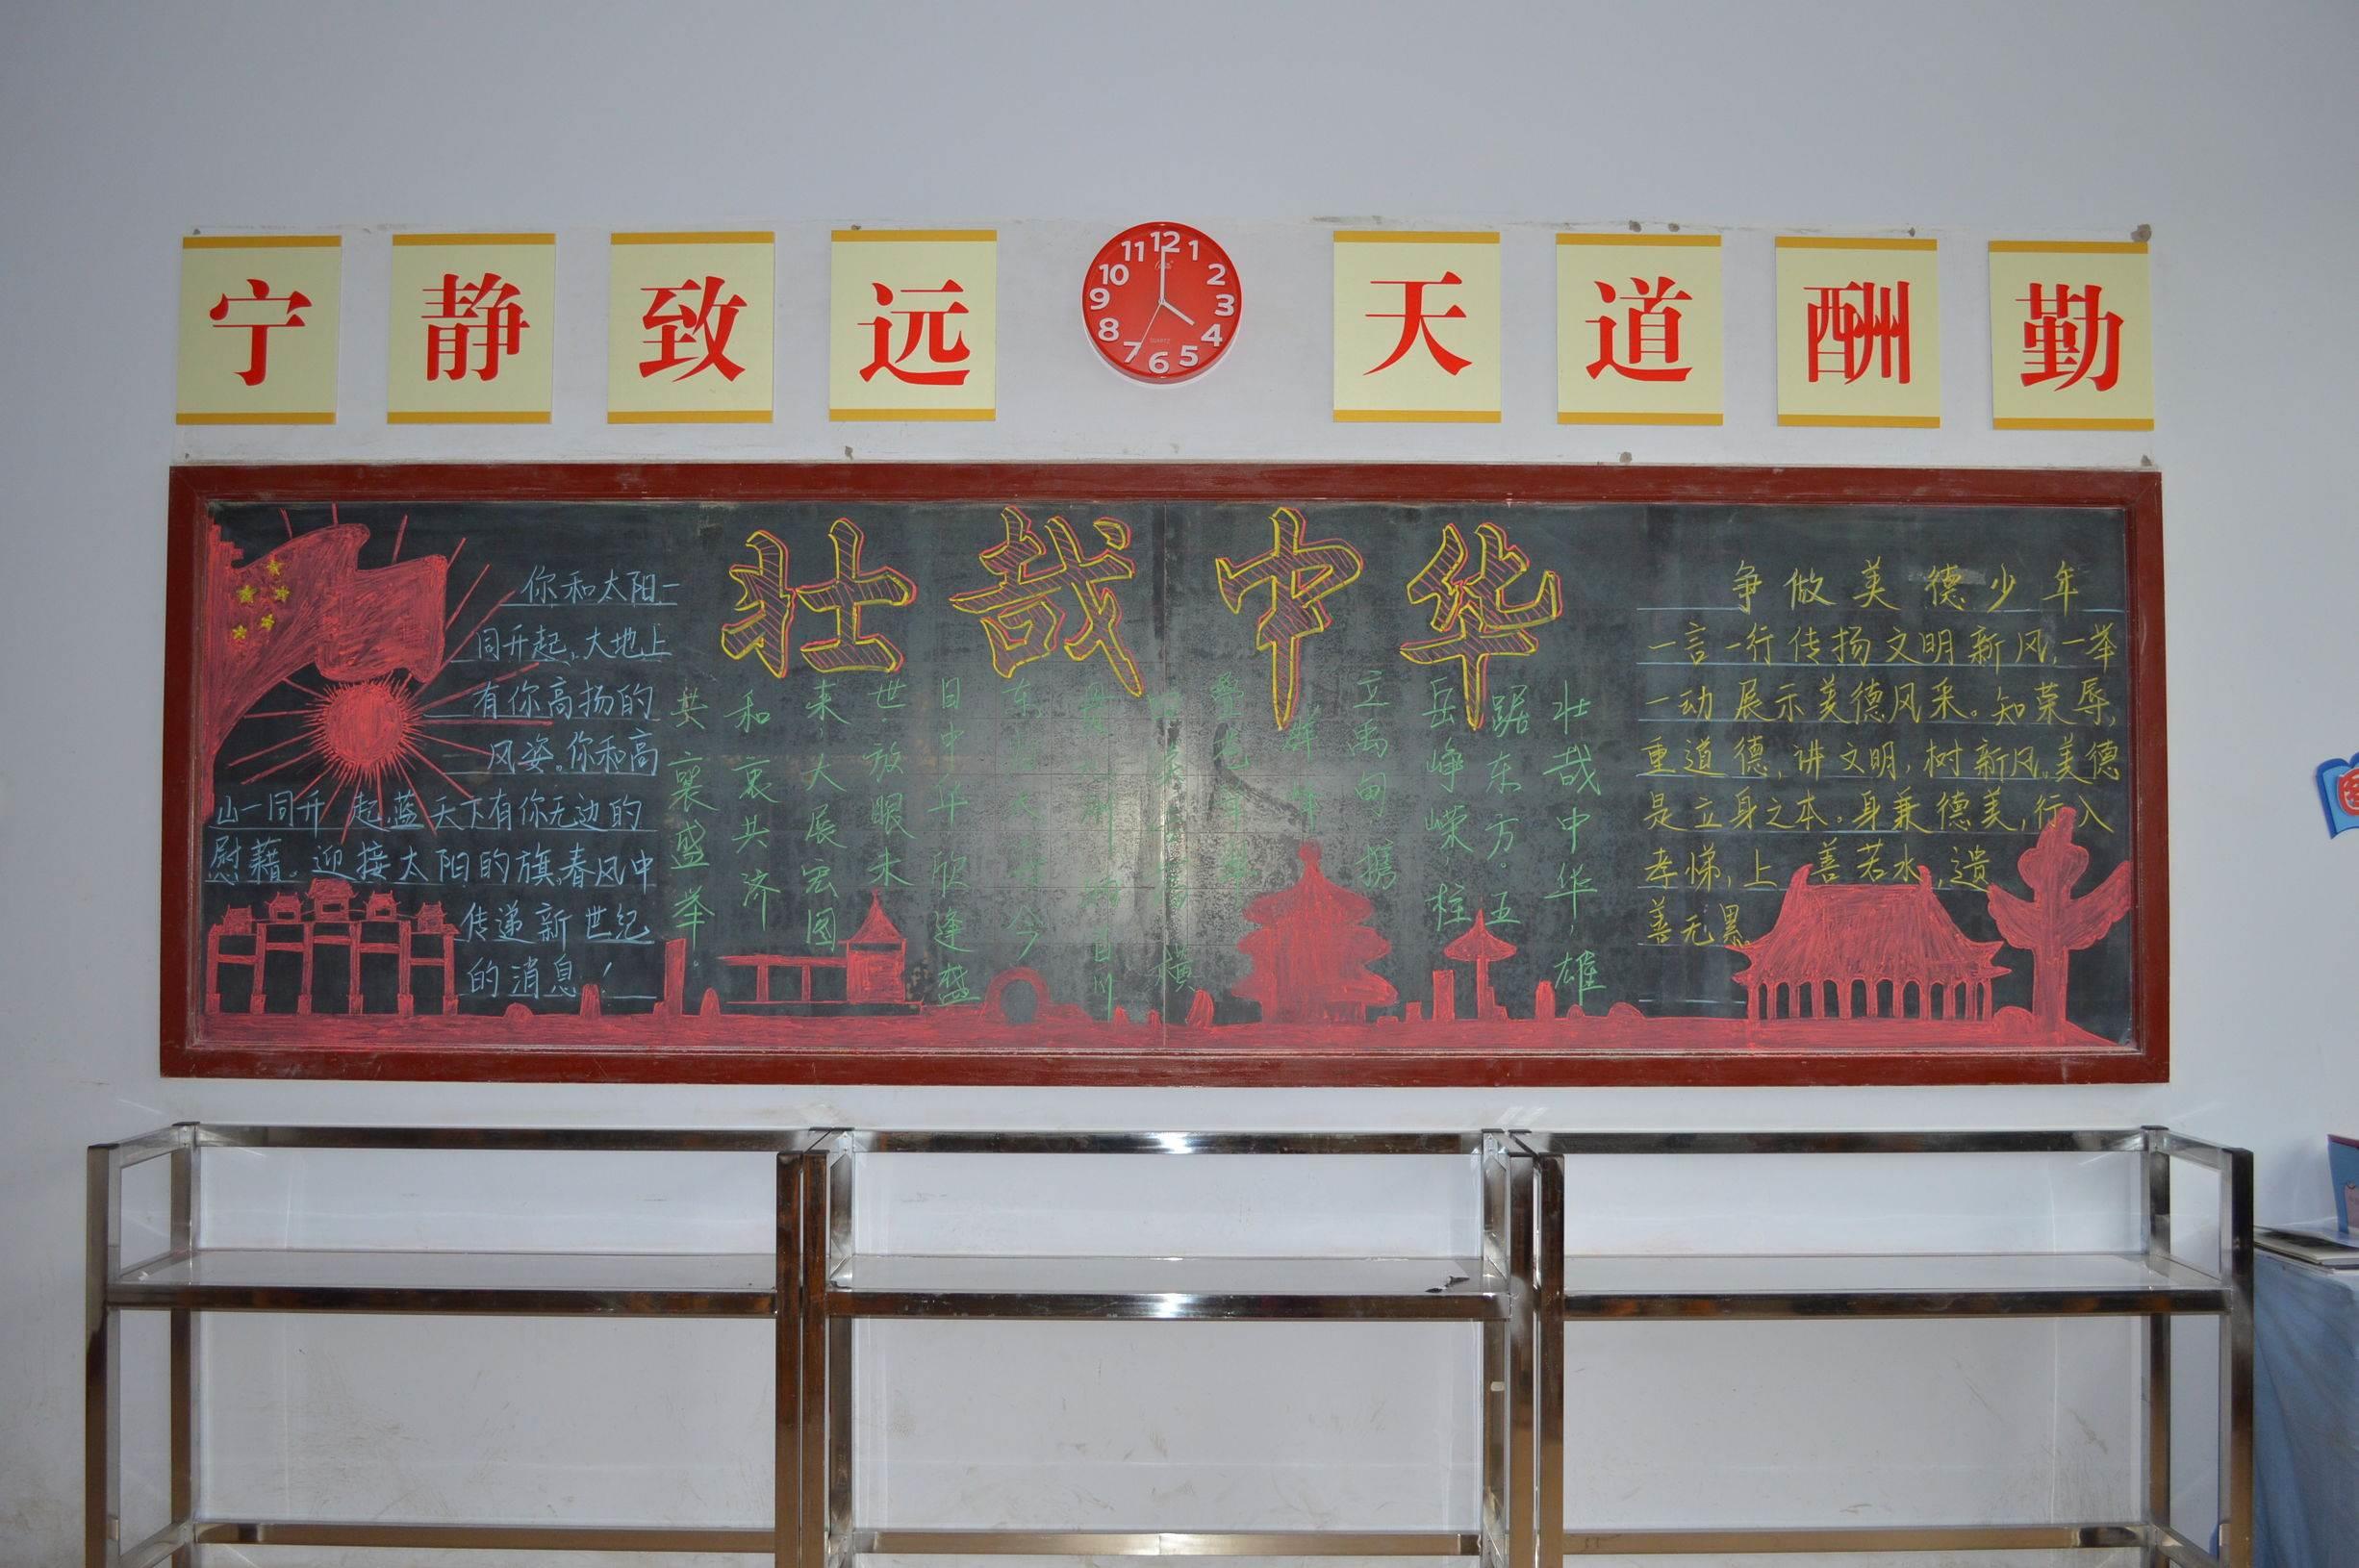 宁静致远
天道酬勤
11 12 1
10 2
9 3
8 4
7 6 5
QUARTZ
壮哉中华
你和太阳一
同升起,大地上
有你高扬的
风姿。你和高
山一同升起,蓝天下有你无边的
慰藉。迎接太阳的旗,春风中
传递新世纪
的消息!
壮哉中华,雄
踞东方。五
岳峥嵘,柱
立禹甸,携
日中年欣逢盛
世,放眼未
来,大展宏图
和衷共济
共襄盛举。
争做美德少年
一言一行传扬文明新风,一举
一动展示美德风采。知荣辱,
重道德,讲文明,树新风。美德
是立身之本。身兼德美,行入
孝悌,上善若水,遗
善无累